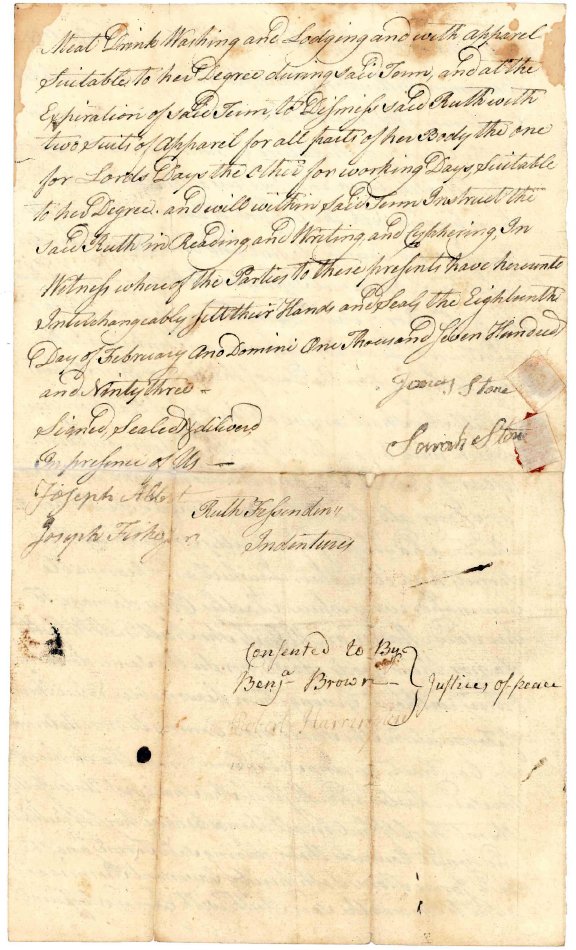 Meat Drink Washing and Lodging and with apparel
Suitable to her Degree during said Term, and at the
Expiration of said Term, to Dismiss said Ruth with
two Suits of Apparel for all parts of her Body the one
for Lords Days the other for working Days, Suitable
to her Degree. and will within said Term Instruct the
said Ruth in Reading and Writing and Cyphering, In
Witness whereof the Parties to these presents have hereunto
Interchangeably sett their Hands and Seals the Eighteenth
Day of February Ano Domini One Thousand Seven Hundred
and Ninty three -
Jonas Stone
Signed, Sealed & deliverd
Sarah Stone
In presence of Us —
Joseph Abbot
Joseph Fiske Jr
Ruth Fessenden"
Indentures
Consented to By
Benja Brown
Justices of peace
Harrington